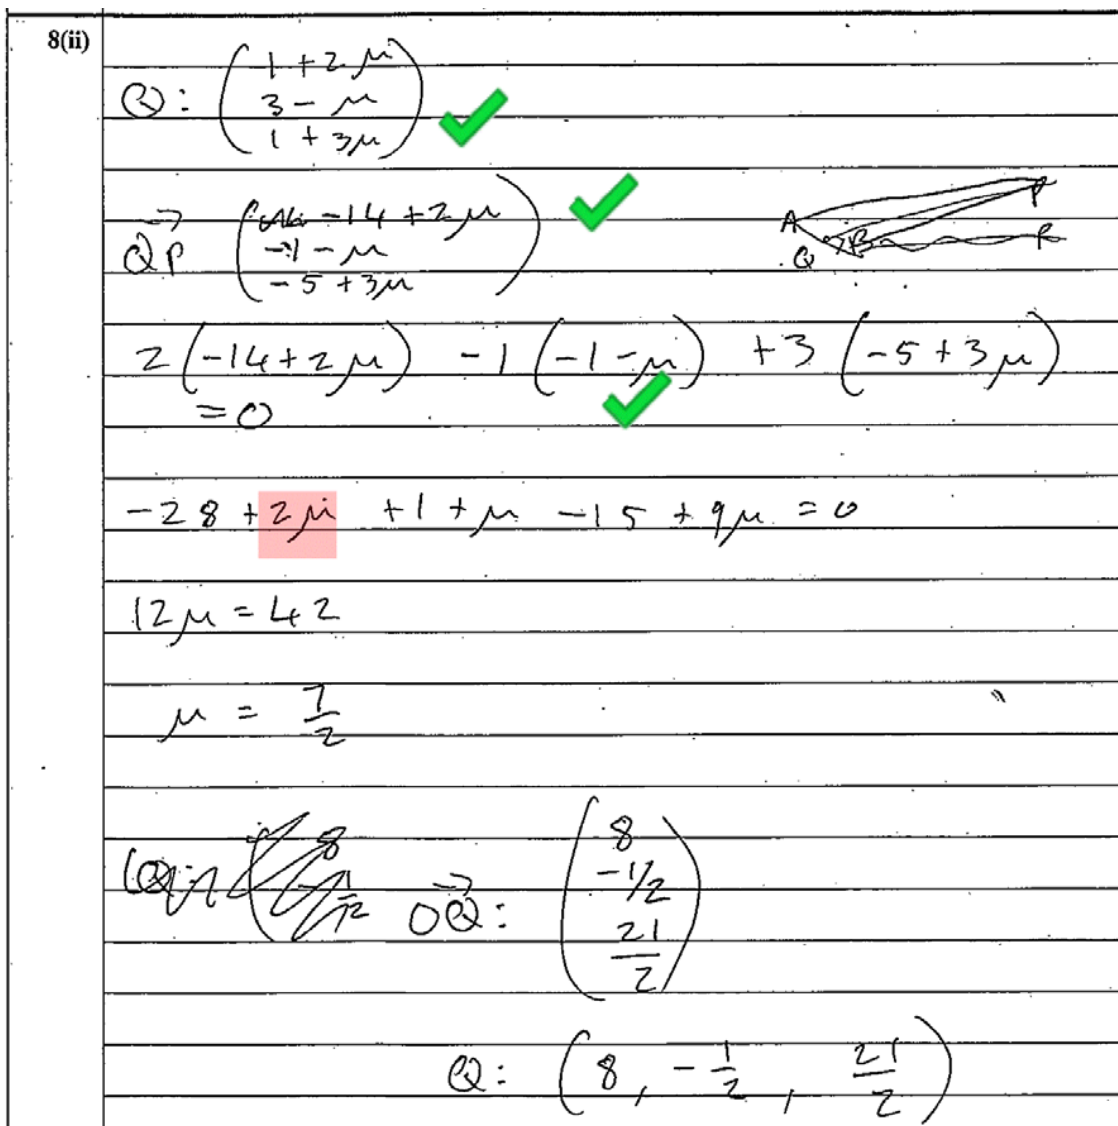 8(ii)
Q: ( 1 + 2μ
3 - μ
1 + 3μ )
QP→ ( -14 + 2μ
-1 - μ
-5 + 3μ )
A P
Q B R
2(-14 + 2μ) -1(-1 - μ) +3(-5 + 3μ)
= 0
-28 + 2μ + 1 + μ - 15 + 9μ = 0
12μ = 42
μ = 7/2
OQ→: ( 8
-1/2
21/2 )
Q: (8, -1/2, 21/2)